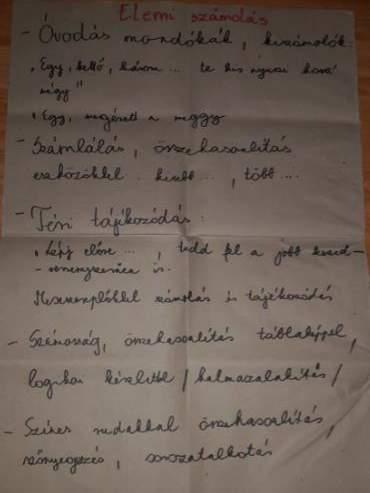 Elemi számolás
- Óvodás mondókák, kiszámolók:
„Egy, kettő, három ... te kis nyuszi hová
mégy"
„Egy, megérett a meggy
- Számlálás, összehasonlítás
eszközökkel. kisebb ..., több ....
- Téri tájékozódás:
„Lépj előre ..., tedd fel a jobb kezed -
- versenyezve is.
Meseszereplőkkel számolás és tájékozódás
- Számosság, összehasonlítás táblaképpel,
logikai készlettel /halmazalakítás/
- Színes rudakkal összehasonlítás,
szőnyegezés, sorozatalkotás